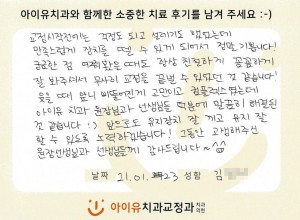 아이유치과와 함께한 소중한 치료 후기를 남겨 주세요 :-)
교정시작전에는 걱정도 되고 설레기도 했었는데
만족스럽게 장치를 뗄 수 있게 되어서 정말 기쁩니다!
궁금한 점 여쭤봤을 때도 항상 친절하게 꼼꼼하게
잘 봐주셔서 무사히 교정을 끝낼 수 있었던 것 같습니다.
웃을 때 앞니 삐뚤어진게 고민이고 컴플렉스였는데
아이유 치과 원장님과 선생님들 덕분에 말끔히 해결된
것 같습니다 :) 앞으로도 유지장치 잘 끼고 유지 잘
할 수 있도록 노력하겠습니다! 그동안 고생해주신
원장선생님과 선생님들께 감사드립니다~^^
날짜 21.01.23 성함 김
아이유치과교정과 치과의원